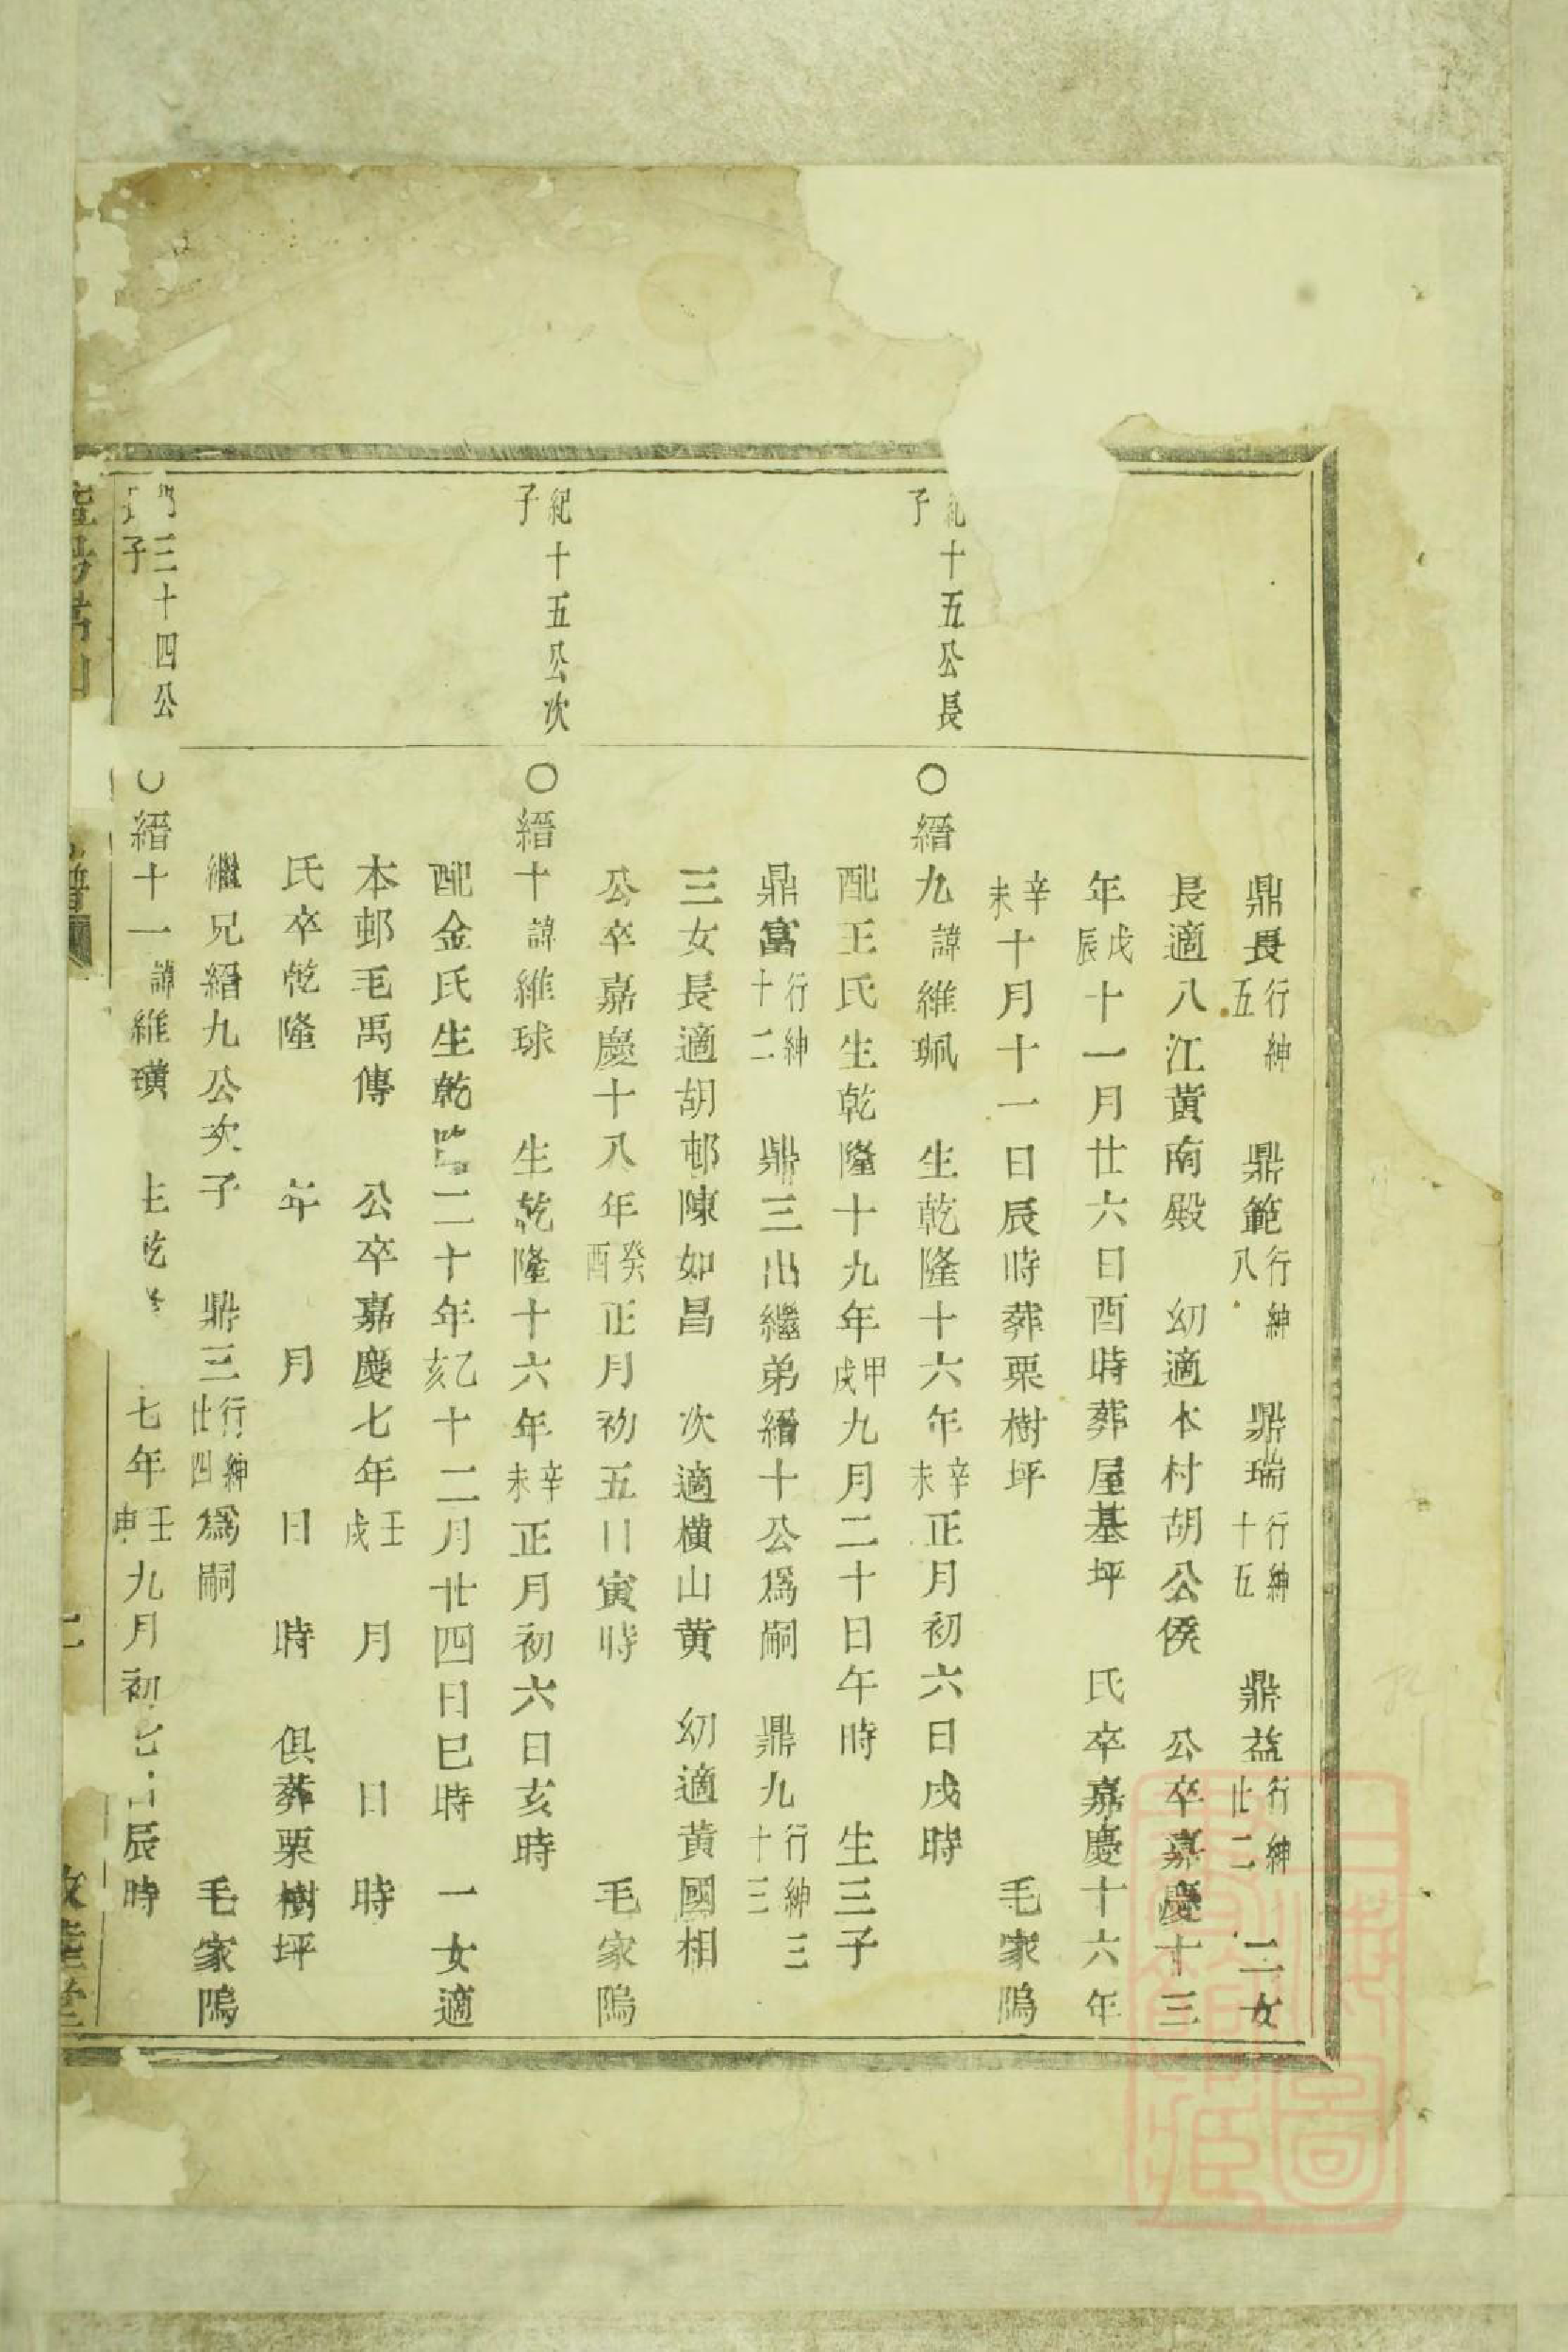 鼎長行紳五 鼎範行紳八 鼎瑞行紳十五 鼎益行紳廿二 二女
長適八江黃南殿 幼適本村胡公侯 公卒嘉慶十三
年戊辰十一月廿六日酉時葬屋基坪 氏卒嘉慶十六年
辛未十月十一日辰時葬栗樹坪 毛家隝
紀十五公長子
○縉九諱維珮 生乾隆十六年辛未正月初六日戌時
配王氏生乾隆十九年甲戌九月二十日午時 生三子
鼎富行紳十二 鼎三出繼弟縉十公爲嗣 鼎九行紳十三 三
三女長適胡邨陳如昌 次適橫山黃 幼適黃國相
公卒嘉慶十八年癸酉正月初五日寅時 毛家隝
紀十五公次子
○縉十諱維球 生乾隆十六年辛未正月初六日亥時
配金氏生乾隆二十年乙亥十二月廿四日巳時 一女適
本邨毛禹傳 公卒嘉慶七年壬戌 月 日 時
氏卒乾隆 年 月 日 時 俱葬栗樹坪
繼兄縉九公次子 鼎三行紳廿四爲嗣 毛家隝
三十四公 子
○縉十一諱維璜 生乾 七年壬申九月初七日辰時
譜
睦堂